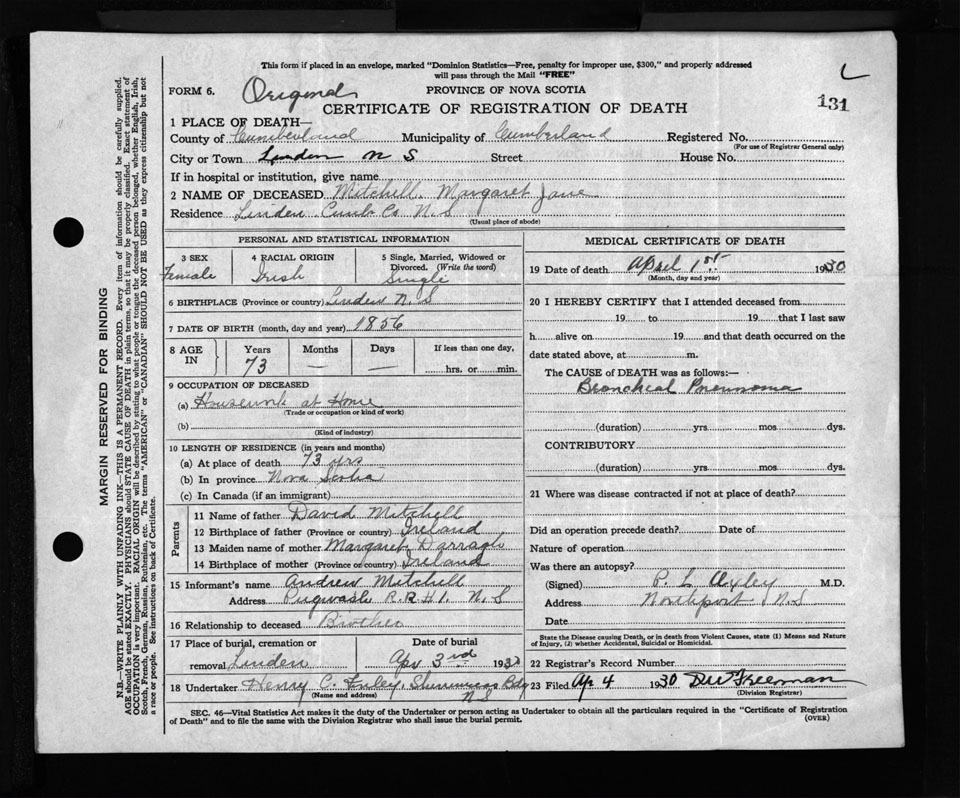 This form if placed in an envelope, marked "Dominion Statistics—Free, penalty for improper use, $300," and properly addressed
will pass through the Mail "FREE"
L
FORM 6. Original PROVINCE OF NOVA SCOTIA
CERTIFICATE OF REGISTRATION OF DEATH 131
1 PLACE OF DEATH—
County of Cumberland Municipality of Cumberland Registered No.
(For use of Registrar General only)
City or Town Linden N S Street House No.
If in hospital or institution, give name
2 NAME OF DECEASED Mitchell, Margaret Jane
Residence Linden Cumb Co N. S
(Usual place of abode)
PERSONAL AND STATISTICAL INFORMATION
3 SEX Female
4 RACIAL ORIGIN Irish
5 Single, Married, Widowed or Divorced. (Write the word) Single
6 BIRTHPLACE (Province or country) Linden N. S
7 DATE OF BIRTH (month, day and year) 1856
8 AGE IN Years 73 Months — Days — If less than one day, hrs. or min.
9 OCCUPATION OF DECEASED
(a) Housework at Home
(Trade or occupation or kind of work)
(b)
(Kind of industry)
10 LENGTH OF RESIDENCE (in years and months)
(a) At place of death 73 yrs
(b) In province Nova Scotia
(c) In Canada (if an immigrant)
Parents
11 Name of father David Mitchell
12 Birthplace of father (Province or country) Ireland
13 Maiden name of mother Margaret
14 Birthplace of mother (Province or country) Ireland
15 Informant's name Andrew Mitchell
Address Pugwash R. R # 1. N. S
16 Relationship to deceased Brother
17 Place of burial, cremation or removal Linden
Date of burial Apr 3rd 1930
18 Undertaker Henry C. N S
(Name and address)
MEDICAL CERTIFICATE OF DEATH
19 Date of death April 1st 1930
(Month, day and year)
20 I HEREBY CERTIFY that I attended deceased from
19 to 19 that I last saw
h alive on 19 and that death occurred on the
date stated above, at m.
The CAUSE of DEATH was as follows:—
Broncheal Pneumonia
(duration) yrs. mos dys.
CONTRIBUTORY
(duration) yrs. mos dys.
21 Where was disease contracted if not at place of death?
Did an operation precede death? Date of
Nature of operation
Was there an autopsy?
(Signed) P. L M.D.
Address Northport N. S
Date
State the Disease causing Death, or in death from Violent Causes, state (1) Means and Nature
of Injury, (2) whether Accidental, Suicidal or Homicidal.
22 Registrar's Record Number
23 Filed Ap 4 1930 D W Freeman
(Division Registrar)
SEC. 46—Vital Statistics Act makes it the duty of the Undertaker or person acting as Undertaker to obtain all the particulars required in the "Certificate of Registration
of Death" and to file the same with the Division Registrar who shall issue the burial permit. (OVER)
MARGIN RESERVED FOR BINDING
N.B.—WRITE PLAINLY WITH UNFADING INK—THIS IS A PERMANENT RECORD. Every item of information should be carefully supplied.
AGE should be stated EXACTLY. PHYSICIANS should STATE CAUSE OF DEATH in plain terms, so that it may be properly classified. Exact statement of
OCCUPATION is very important. RACIAL ORIGIN will be described by stating to what people or tongue the deceased person belonged, whether English, Irish,
Scotch, French, German, Russian, Ruthenian, etc. The terms "AMERICAN" or "CANADIAN" SHOULD NOT BE USED as they express citizenship but not
a race or people. See instructions on back of Certificate.